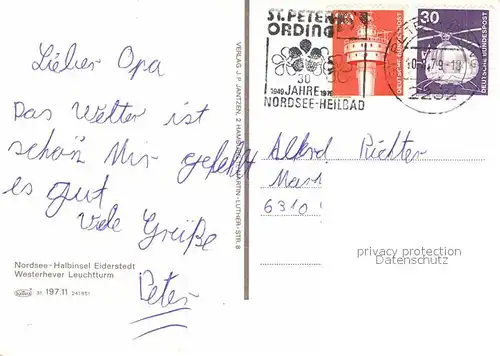 Lieber Opa
Das Wetter ist
schön Mir gefehlt
es gut
Viele Grüße
Peter
Nordsee-Halbinsel Eiderstedt
Westerhever Leuchtturm
197.11
VERLAG J. P. JANTZEN, 2 HAMBURG MARTIN-LUTHER-STR. 8
ST. PETER
ORDING
30
1949 JAHRE 1979
NORDSEE-HEILBAD
DEUTSCHE BUNDESPOST
30
DEUTSCHE BUNDESPOST
Alfred Richter
6310
privacy protection
Datenschutz